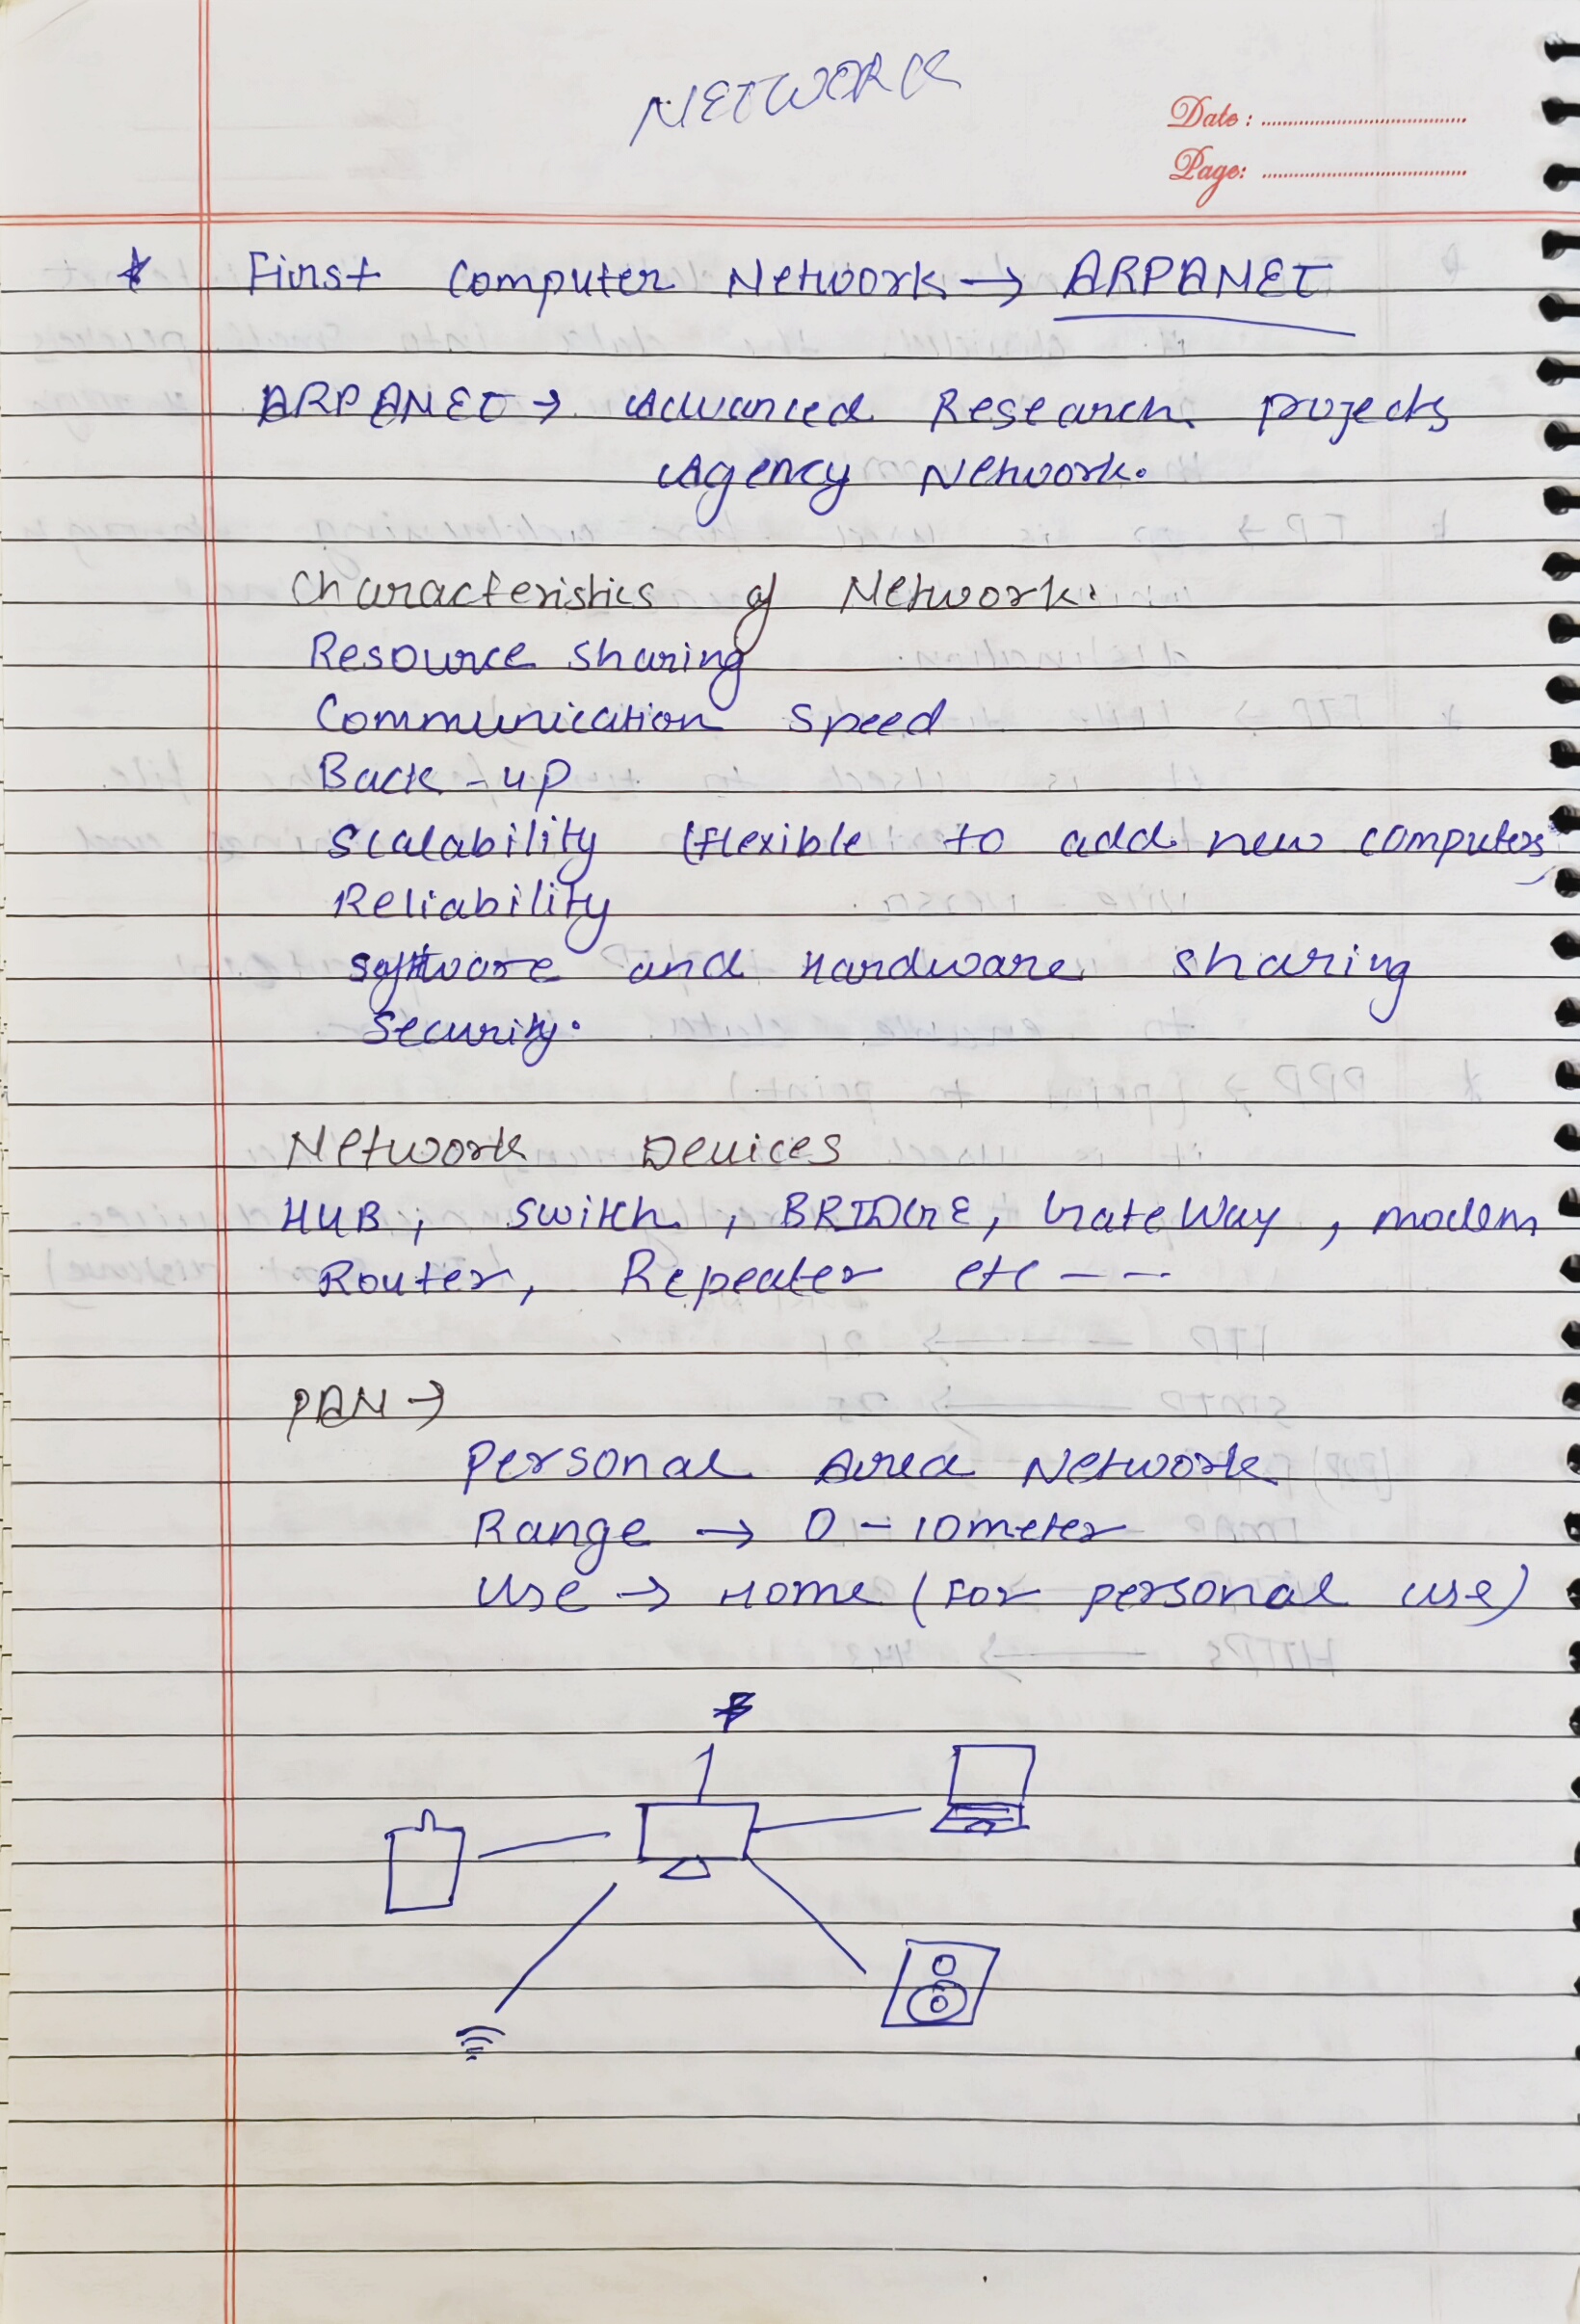 NETWORK
Date :
Page:
* First Computer Network → ARPANET
ARPANET → Advanced Research projects
Agency Network.
Characteristics of Network:
Resource sharing
Communication speed
Back-up
Scalability (flexible to add new computers)
Reliability
software and Hardware sharing
Security.
Network Devices
HUB, switch, BRIDGE, GateWay, modem
Router, Repeater etc ---
PAN →
Personal Area Network
Range → 0-10meter
Use → Home (For personal use)